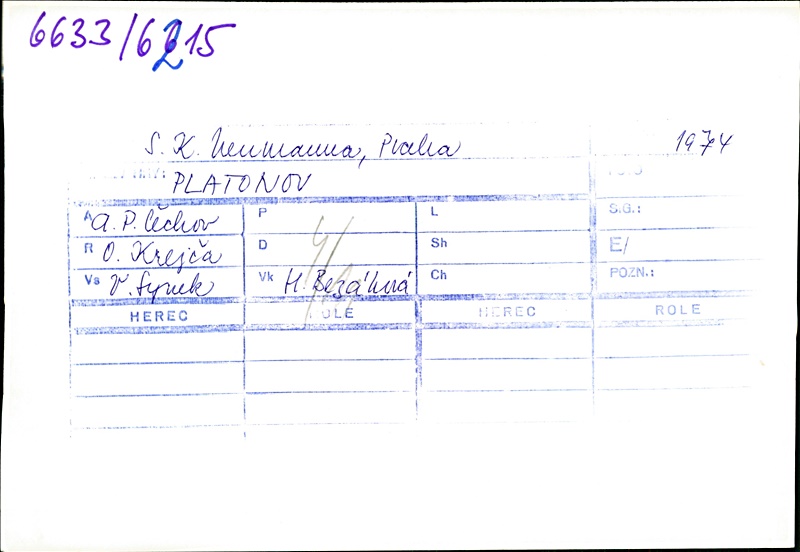 6633/6215
S. K. Neumanna, Praha 1974
PLATONOV
A A. P. Čechov P L S.G.:
R O. Krejča D Sh E/
Vs V. Synek Vk H. Bezáková Ch POZN.:
HEREC ROLE HEREC ROLE